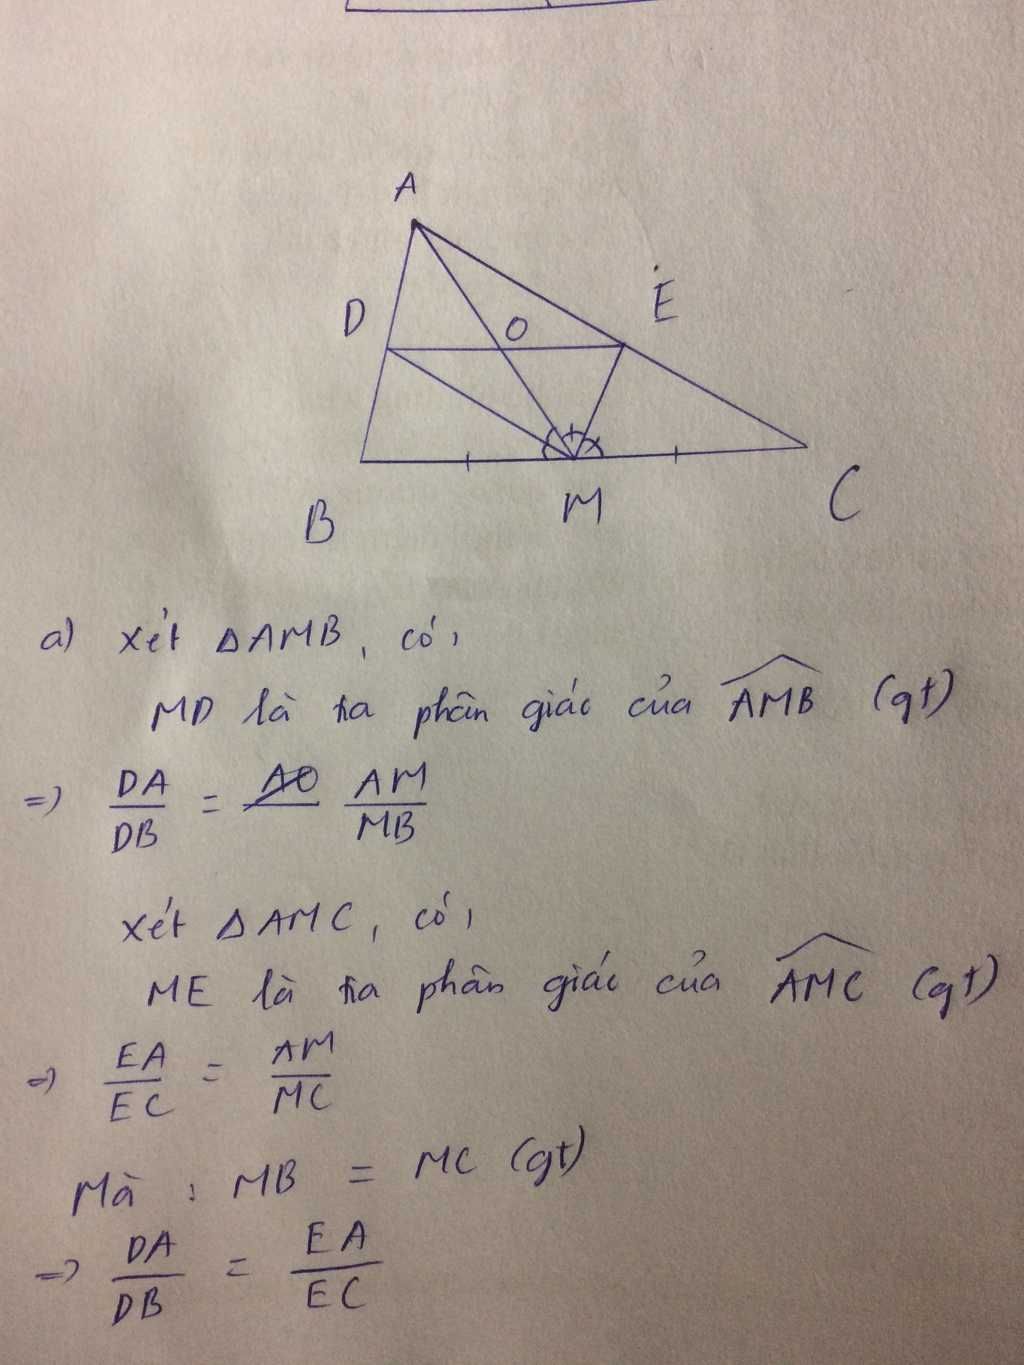 A
D
O
E
B
M
C
a) Xét ΔAMB, có,
MD là tia phân giác của \widehat{AMB} (gt)
=> DA/DB = AM/MB
Xét ΔAMC, có,
ME là tia phân giác của \widehat{AMC} (gt)
=> EA/EC = AM/MC
Mà : MB = MC (gt)
=> DA/DB = EA/EC